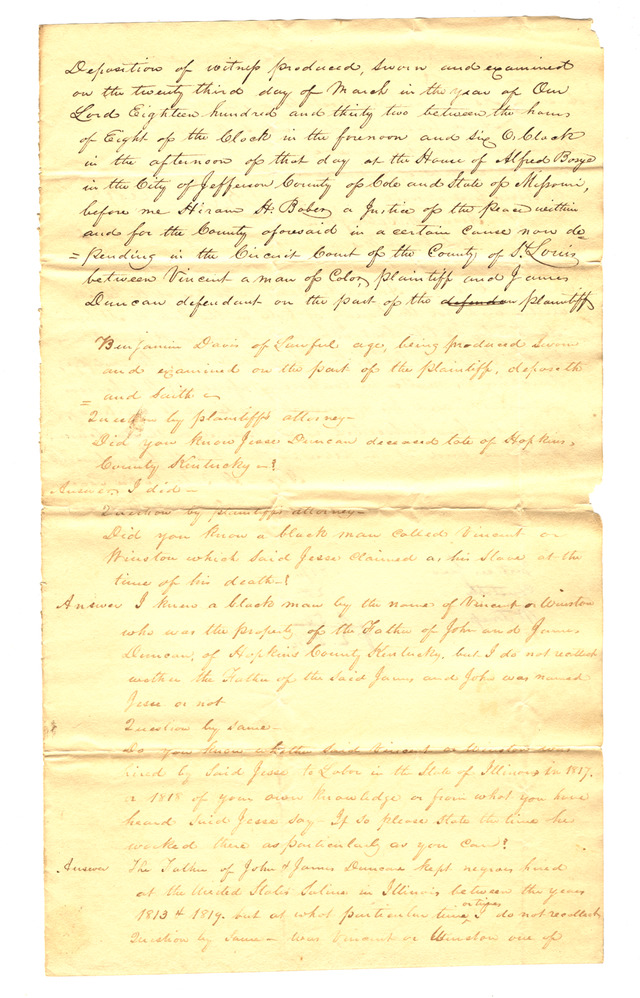 Deposition of witness produced, sworn and examined
on the twenty third day of March in the year of Our
Lord Eighteen hundred and thirty two between the hours
of Eight of the Clock in the forenoon and six O.Clock
in the afternoon of that day at the House of Alfred
in the City of Jefferson County of Cole and State of Missouri,
before me Hiram H. Baber a Justice of the Peace within
and for the County aforesaid in a certain cause now de
= pending in the Circuit Court of the County of St. Louis
between Vincent a man of Color, plaintiff and James
Duncan defendant on the part of the defendan plaintiff
Benjamin Davis of Lawful age, being produced sworn
and examined on the part of the plaintiff, deposeth
= and saith
Question by plaintiff's attorney-
Did you know Jesse Duncan deceased late of Hopkins
County Kentucky-?
Answer I did-
Question by plaintiff's attorney-
Did you know a black man called Vincent or
Winston which said Jesse claimed as his Slave at the
time of his death-?
Answer I knew a black man by the name of Vincent or Winston
who was the property of the Father of John and James
Duncan, of Hopkins County Kentucky. but I do not recollect
wether the Father of the said James and John was named
Jesse or not
Question by same-
Do you know whether said Vincent or Winston was
hired by said Jesse to Labor in the State of Illinois in 1817.
or 1818 of your own knowledge or from what you have
heard said Jesse say- If so please state the time he
worked there as particularly as you can?
Answer The Father of John & James Duncan kept negroes hired
at the United States Saline in Illinois between the years
1813 & 1819. but at what particular time or times I do not recollect
Question by Same- Was Vincent or Winston one of